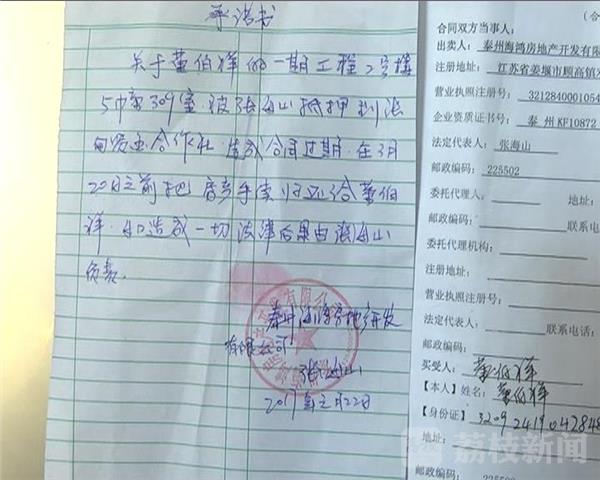 承诺书
关于董伯祥的一期工程2号楼
5中窜309室.被张海山抵押到法
合作社.造成合同过期.在3月
20日之前把房多手续归还给董伯
祥.如造成一切法律后果由张海山
负责.
泰州海鸿房地产开发
有限公司
张海山
2017年2月22日
合同双方当事人：
出卖人：泰州海鸿房地产开发有限
注册地址：江苏省姜堰市顾高镇
营业执照注册号：3212840001054
企业资质证书号：泰 州 KF10872
法定代表人：张海山
邮政编码：225502
委托代理人：
地址：
邮政编码：
联系电
委托代理机构：
注册地址：
营业执照注册号：
法定代表人：
联系电话：
邮政编码：
买受人：董伯祥
【本人】姓名：董伯祥
【身份证】32092419042848
地址：
邮政编码：
荔枝新闻